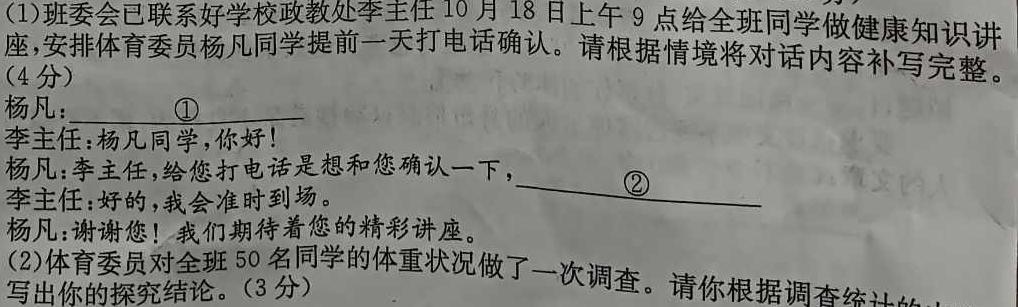 (1)班委会已联系好学校政教处李主任10月18日上午9点给全班同学做健康知识讲
座,安排体育委员杨凡同学提前一天打电话确认。请根据情境将对话内容补写完整。
(4分)
杨凡:①
李主任:杨凡同学,你好!
杨凡:李主任,给您打电话是想和您确认一下,②
李主任:好的,我会准时到场。
杨凡:谢谢您!我们期待着您的精彩讲座。
(2)体育委员对全班50名同学的体重状况做了一次调查。请你根据调查统计的
写出你的探究结论。(3分)